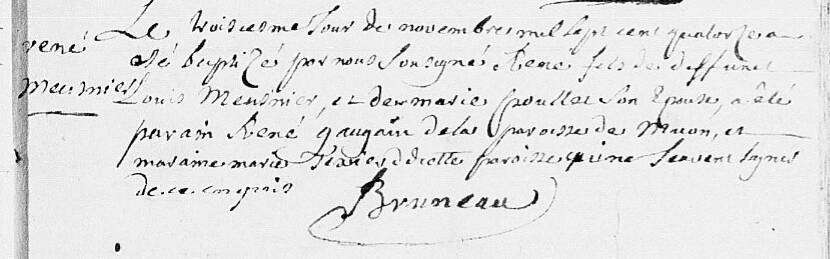 Le troisiesme Jour de novembre mil sept cent quatorze a
rené
Meusnier
Eté baptizé par nous Sousigné René fils de deffunct
Louis Meusnier, et de marie poullet son Epouse, a êté
parain René gaugain de la paroisse de muon, et
maraine marie Texier d icelle paroisse qui ne scavent signer
de ce enquis
Bruneau